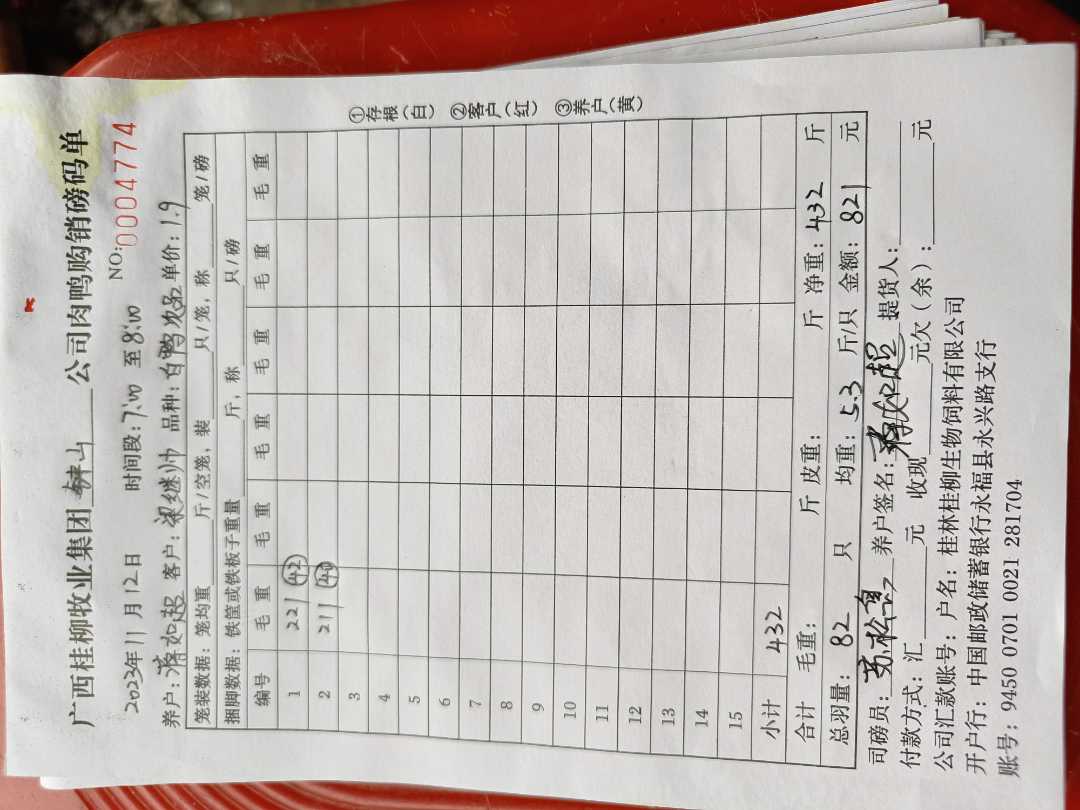 广西桂柳牧业集团 钟山 公司肉鸭购销磅码单
NO:0004774
2023年11月12日 时间段:7:00 至8:00
养户:蒋如超 客户:梁继帅 品种:白鸭次品 单价:1.9
笼装数据:笼均重 斤/空笼,装 只/笼,称 笼/磅
捆脚数据:铁筐或铁板子重量 斤,称 只/磅
编号 毛重 毛重 毛重 毛重 毛重 毛重
1 221 42
2 211 40
3
4
5
6
7
8
9
10
11
12
13
14
15
小计 432
合计 毛重: 斤 皮重: 斤 净重:432 斤
总羽量:82 只 均重:5.3 斤/只 金额:821 元
司磅员: 养户签名:蒋如超 提货人:
付款方式:汇 元 收现 元欠(余): 元
公司汇款账号:户名:桂林桂柳生物饲料有限公司
开户行:中国邮政储蓄银行永福县永兴路支行
账号:9450 0701 0021 281704
①存根(白) ②客户(红) ③养户(黄)